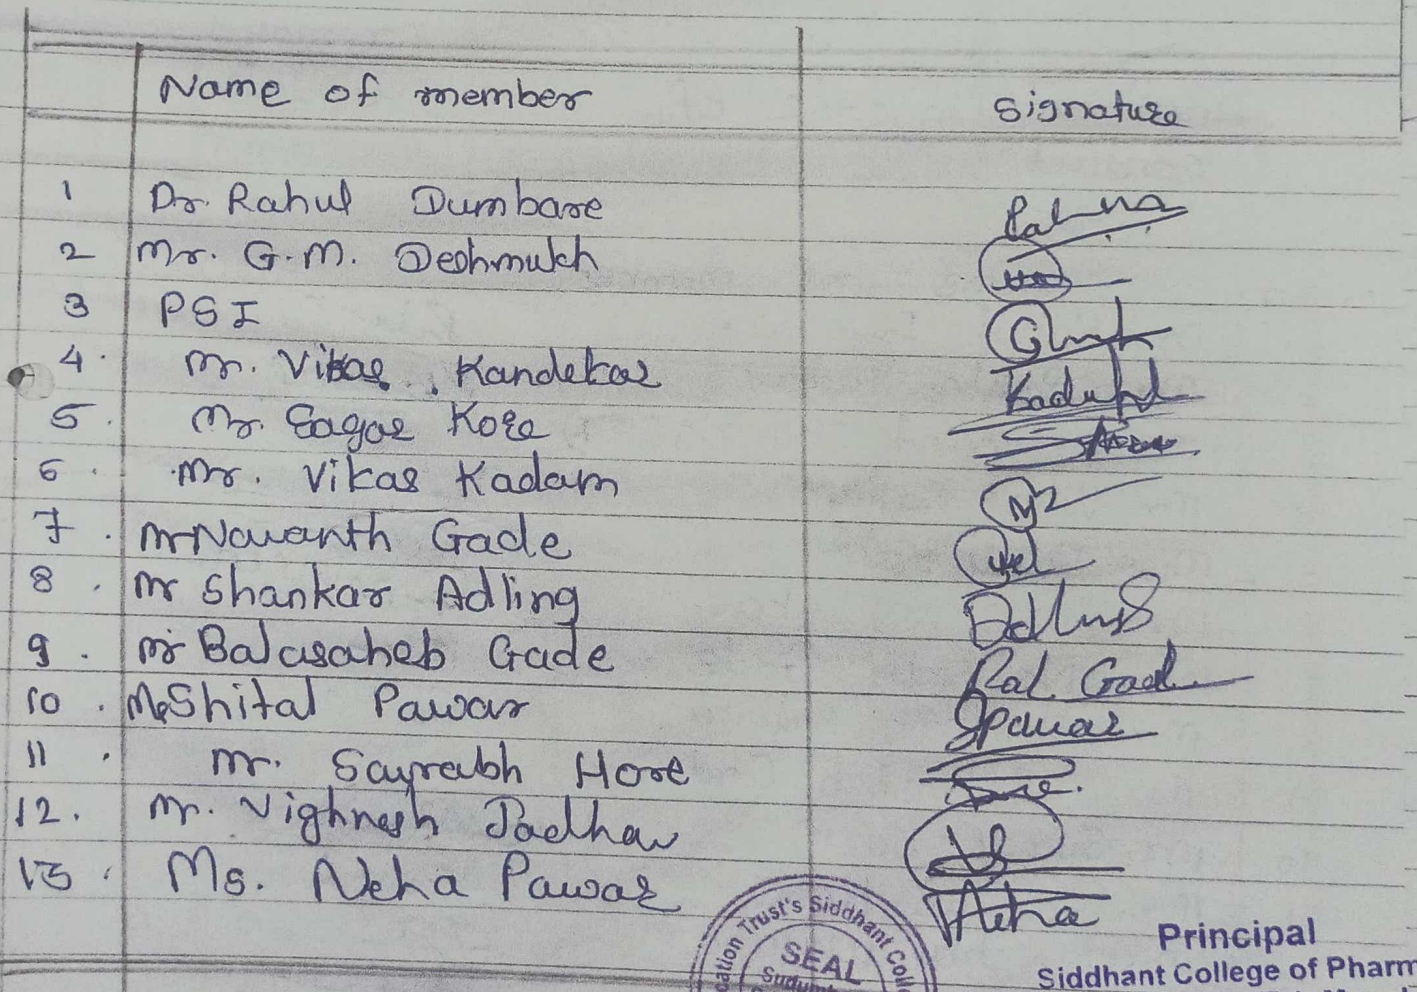 Name of member Signature
1 Dr. Rahul Dumbare
2 Mr. G.M. Deshmukh
3 PSI
4. Mr. Vikas Kandekar
5. Mr. Sagar Kore
6. Mr. Vikas Kadam
7. Mr Navanth Gade
8. Mr Shankar Adling
9. Mr Balasaheb Gade Bal Gade
10. Ms Shital Pawar SPawar
11. Mr. Saurabh Hore
12. Mr. Vighnesh Jadhav
13. Ms. Neha Pawar Neha
Trust's Siddhant
SEAL
Principal
Siddhant College of Pharm